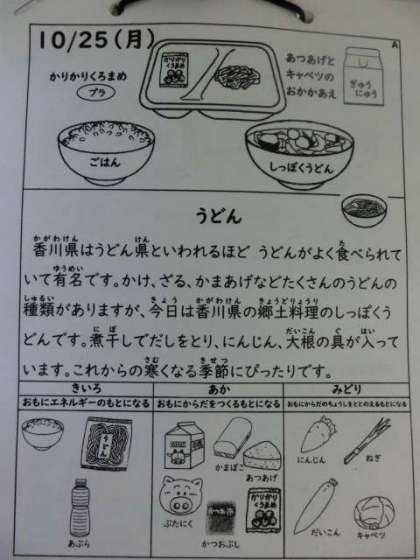 10/25(月)
A
かりかりくろまめ
プラ
かりかり
くろまめ
あつあげと
キャベツの
おかかあえ
ぎゅう
にゅう
ごはん
しっぽくうどん
うどん
香川県はうどん県といわれるほど うどんがよく食べられて
かがわけん けん た
いて有名です。かけ、ざる、かまあげなどたくさんのうどんの
ゆうめい
種類がありますが、今日は香川県の郷土料理のしっぽくう
しゅるい きょう かがわけん きょうどりょうり
どんです。煮干しでだしをとり、にんじん、大根の具が入って
にぼ だいこん ぐ はい
います。これからの寒くなる季節にぴったりです。
さむ きせつ
きいろ
おもにエネルギーのもとになる
うどん
あぶら
あか
おもにからだをつくるもとになる
MILK
かまぼこ
あつあげ
ぶたにく
かつおぶし
かりかり
くろまめ
みどり
おもにからだのちょうしをととのえるもとになる
にんじん
ねぎ
だいこん
キャベツ